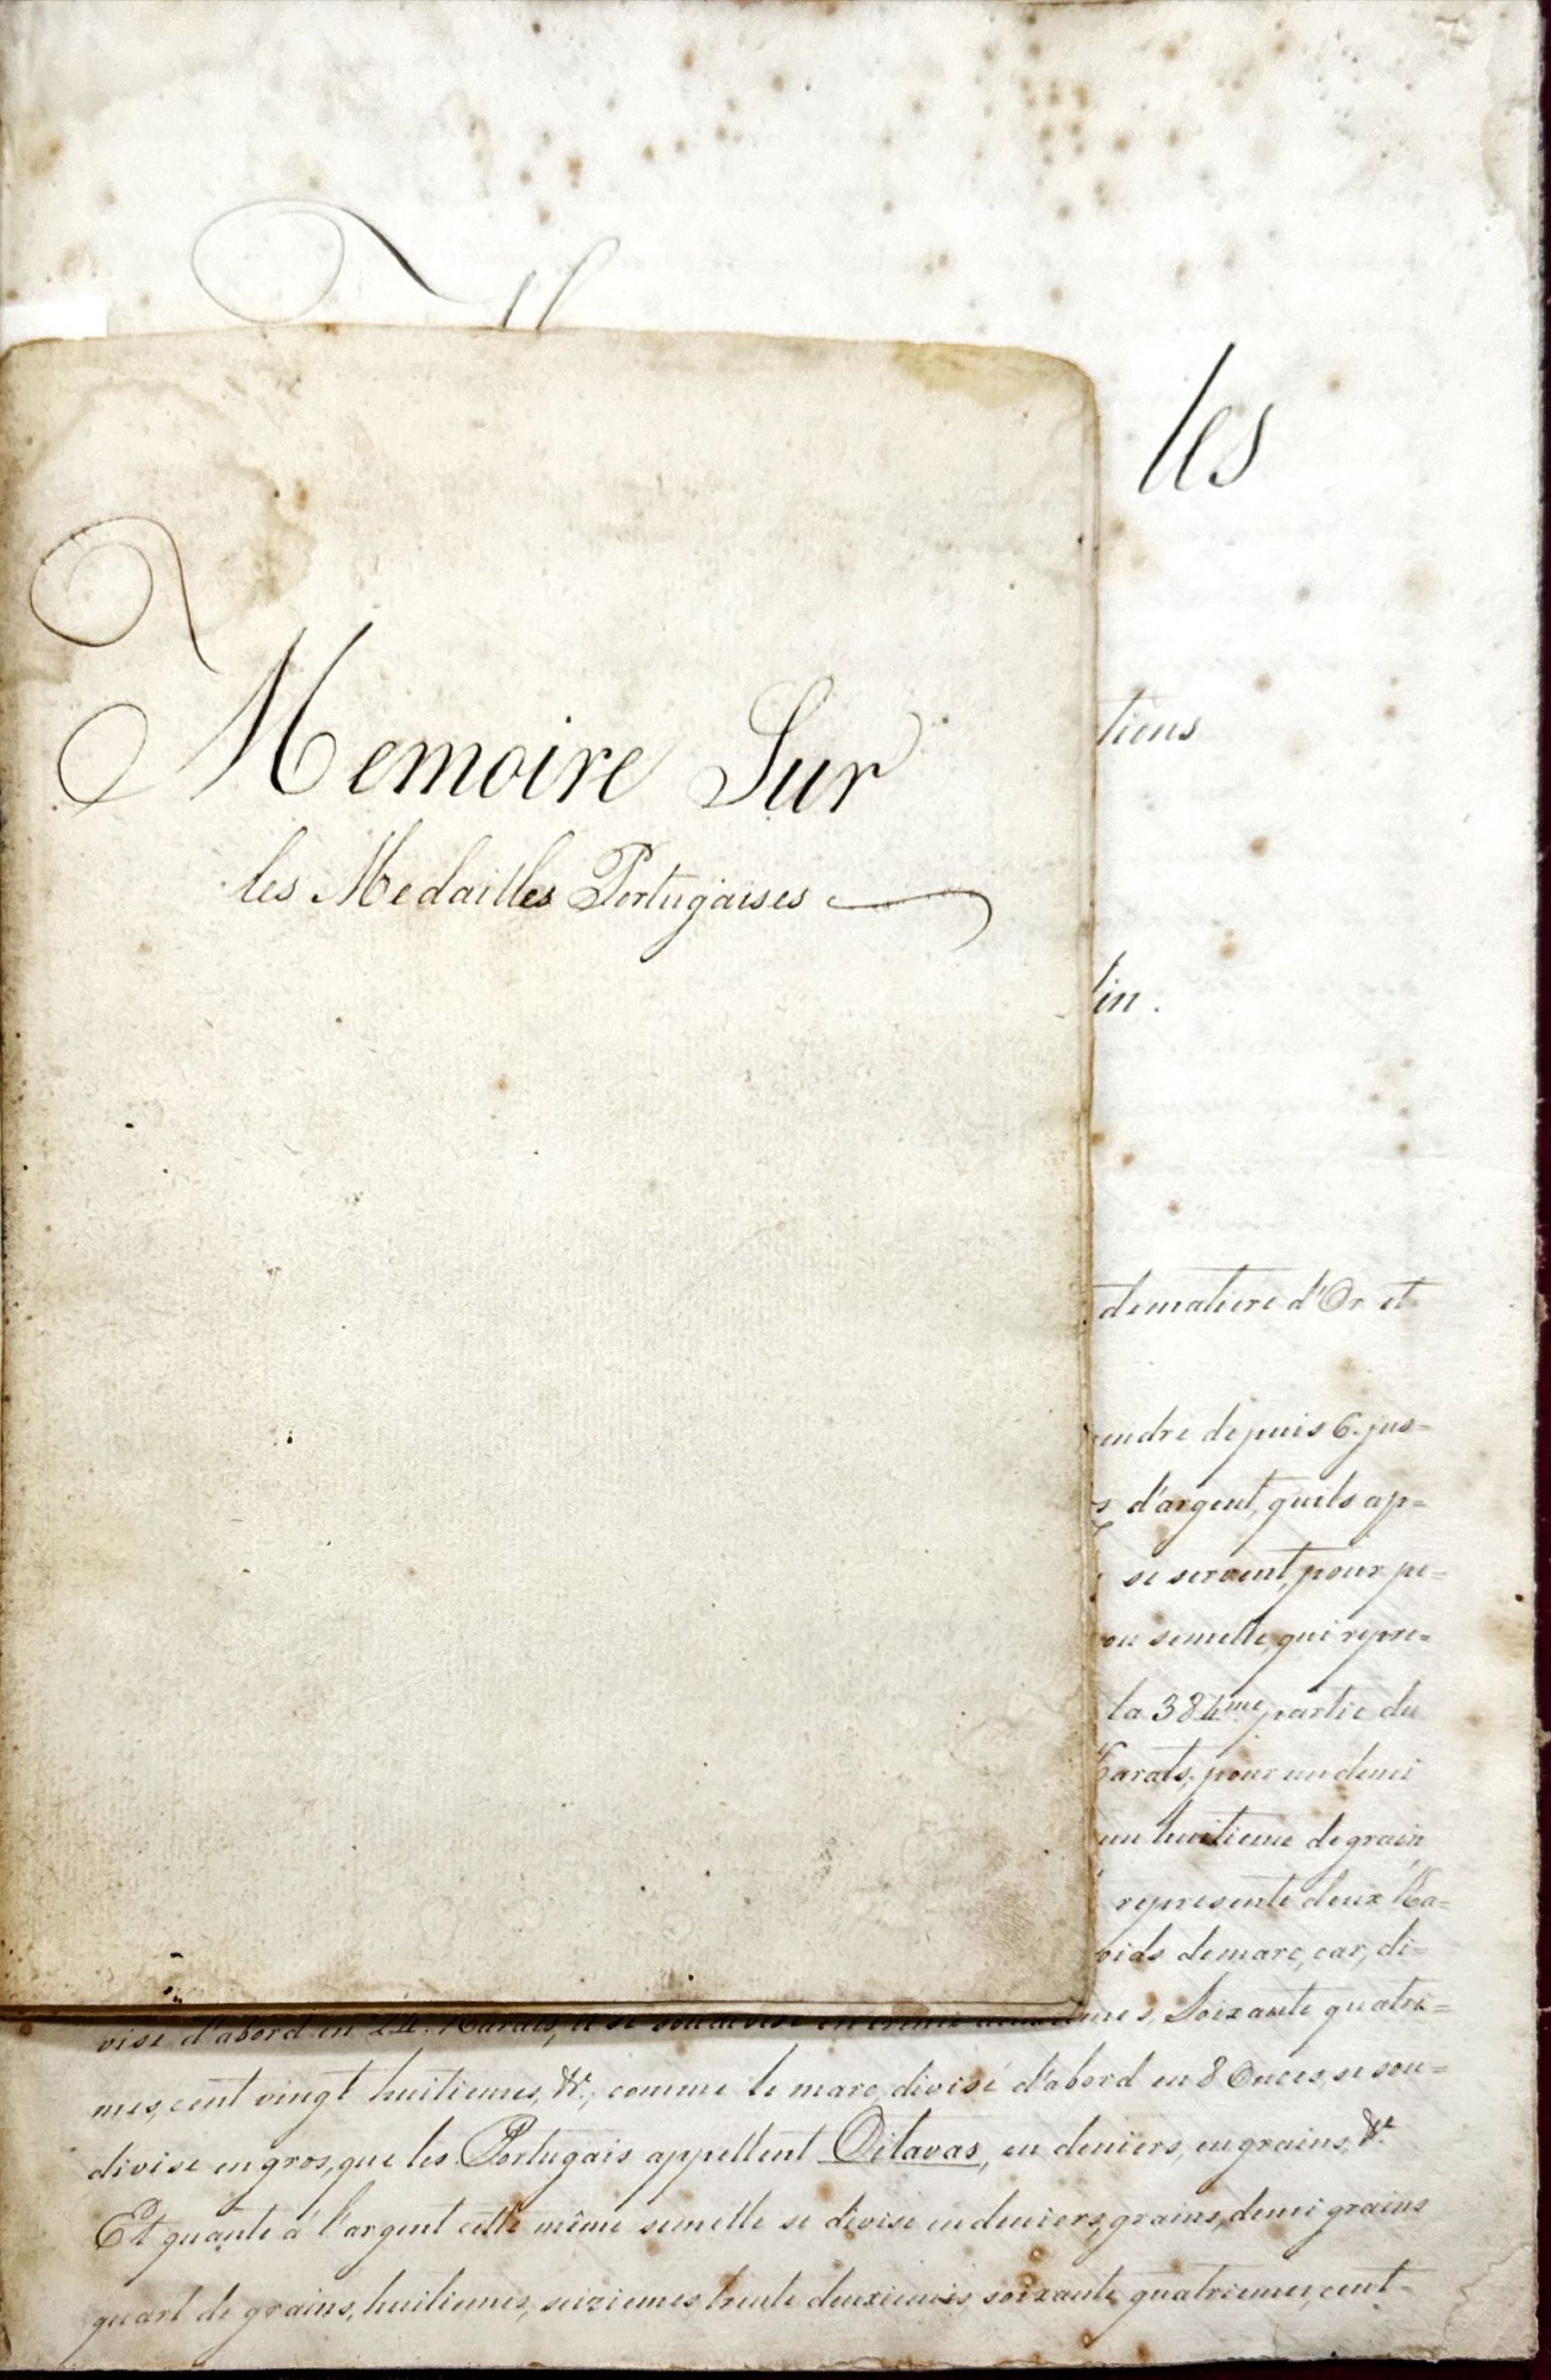 les
Memoire Sur
les Medailles Portugaises
tiens
lin.
de matiere d'Or et
endre depuis 6. jus=
s d'argent, quils ap=
se servent, pour pe=
ou semelle, qui repre=
la 384.me partie du
Karats, pour un demi
un huitieme de grain
represente deux Ka=
oids de marc, car, di=
visé d'abord en 24. Karats, il se Soixante quatri=
mes, cent vingt huitiemes, &c., comme le marc, divisé d'abord en 8 Onces, se sou=
divise en gros, que les Portugais appellent Oitavas, en deniers, en grains, &c.
Et quante à l'argent cette même semelle se divise en deniers, grains, demi grains
quart de grains, huitiemes, seiziemes, trente deuxiemes, soixante quatriemes, cent